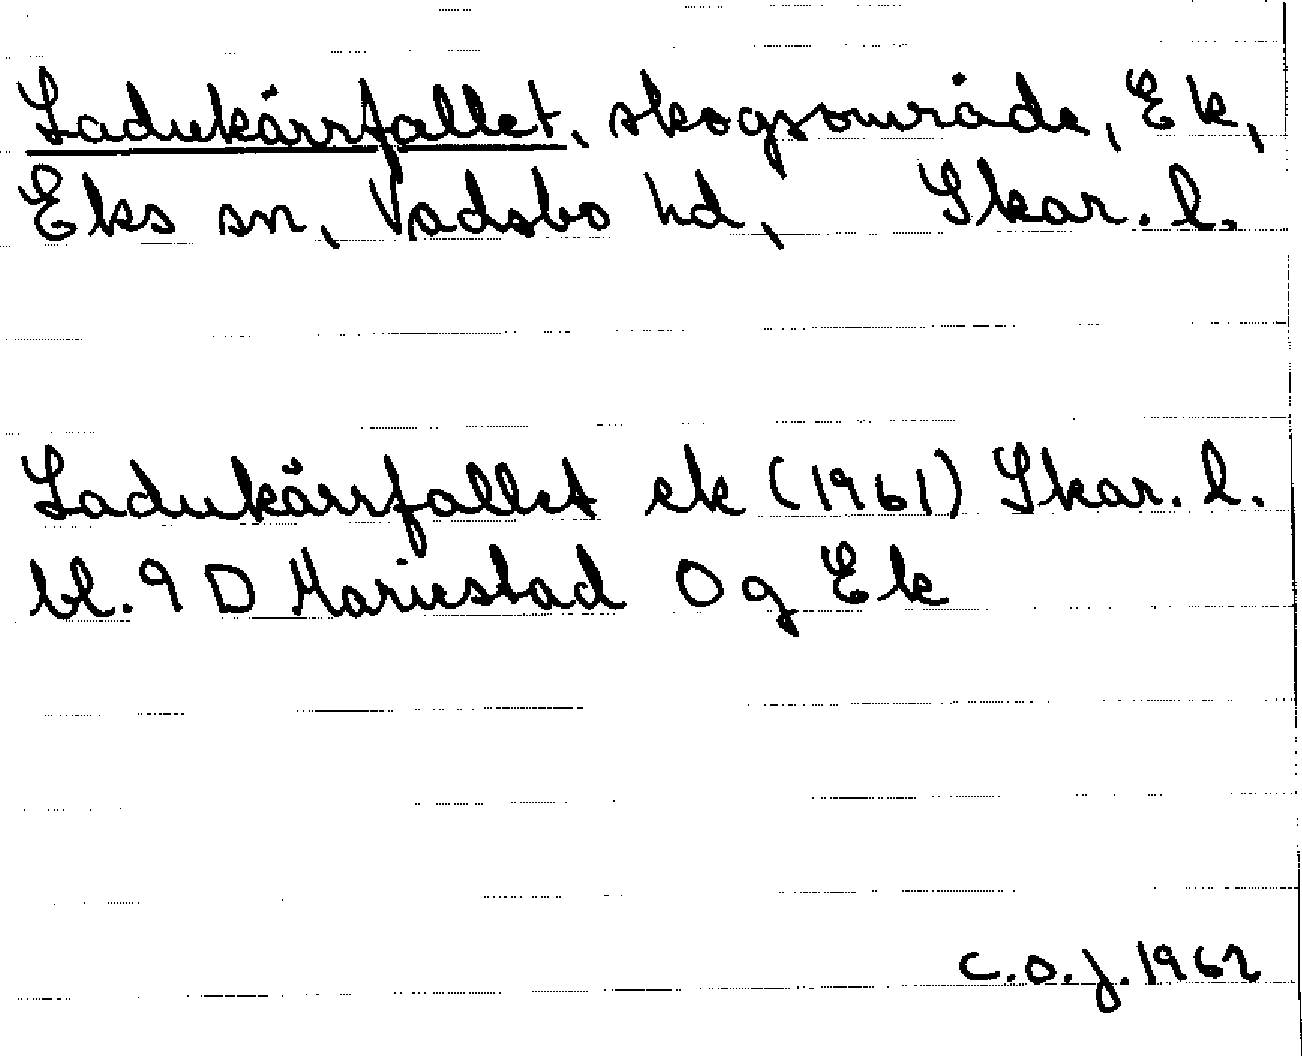 Ladukärrfallet, skogsområde, Ek,
Eks sn, Vadsbo hd, Skar. l.
Ladukärrfallet ek (1961) Skar. l.
bl. 9 D Mariestad Og Ek
C.O.J. 1962